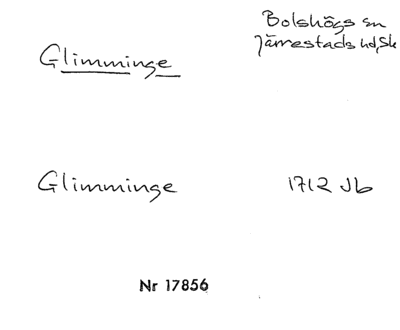 Bolshögs sn
Glimminge
Järrestads hd, Sk
Glimminge 1712 Jb
Nr 17856